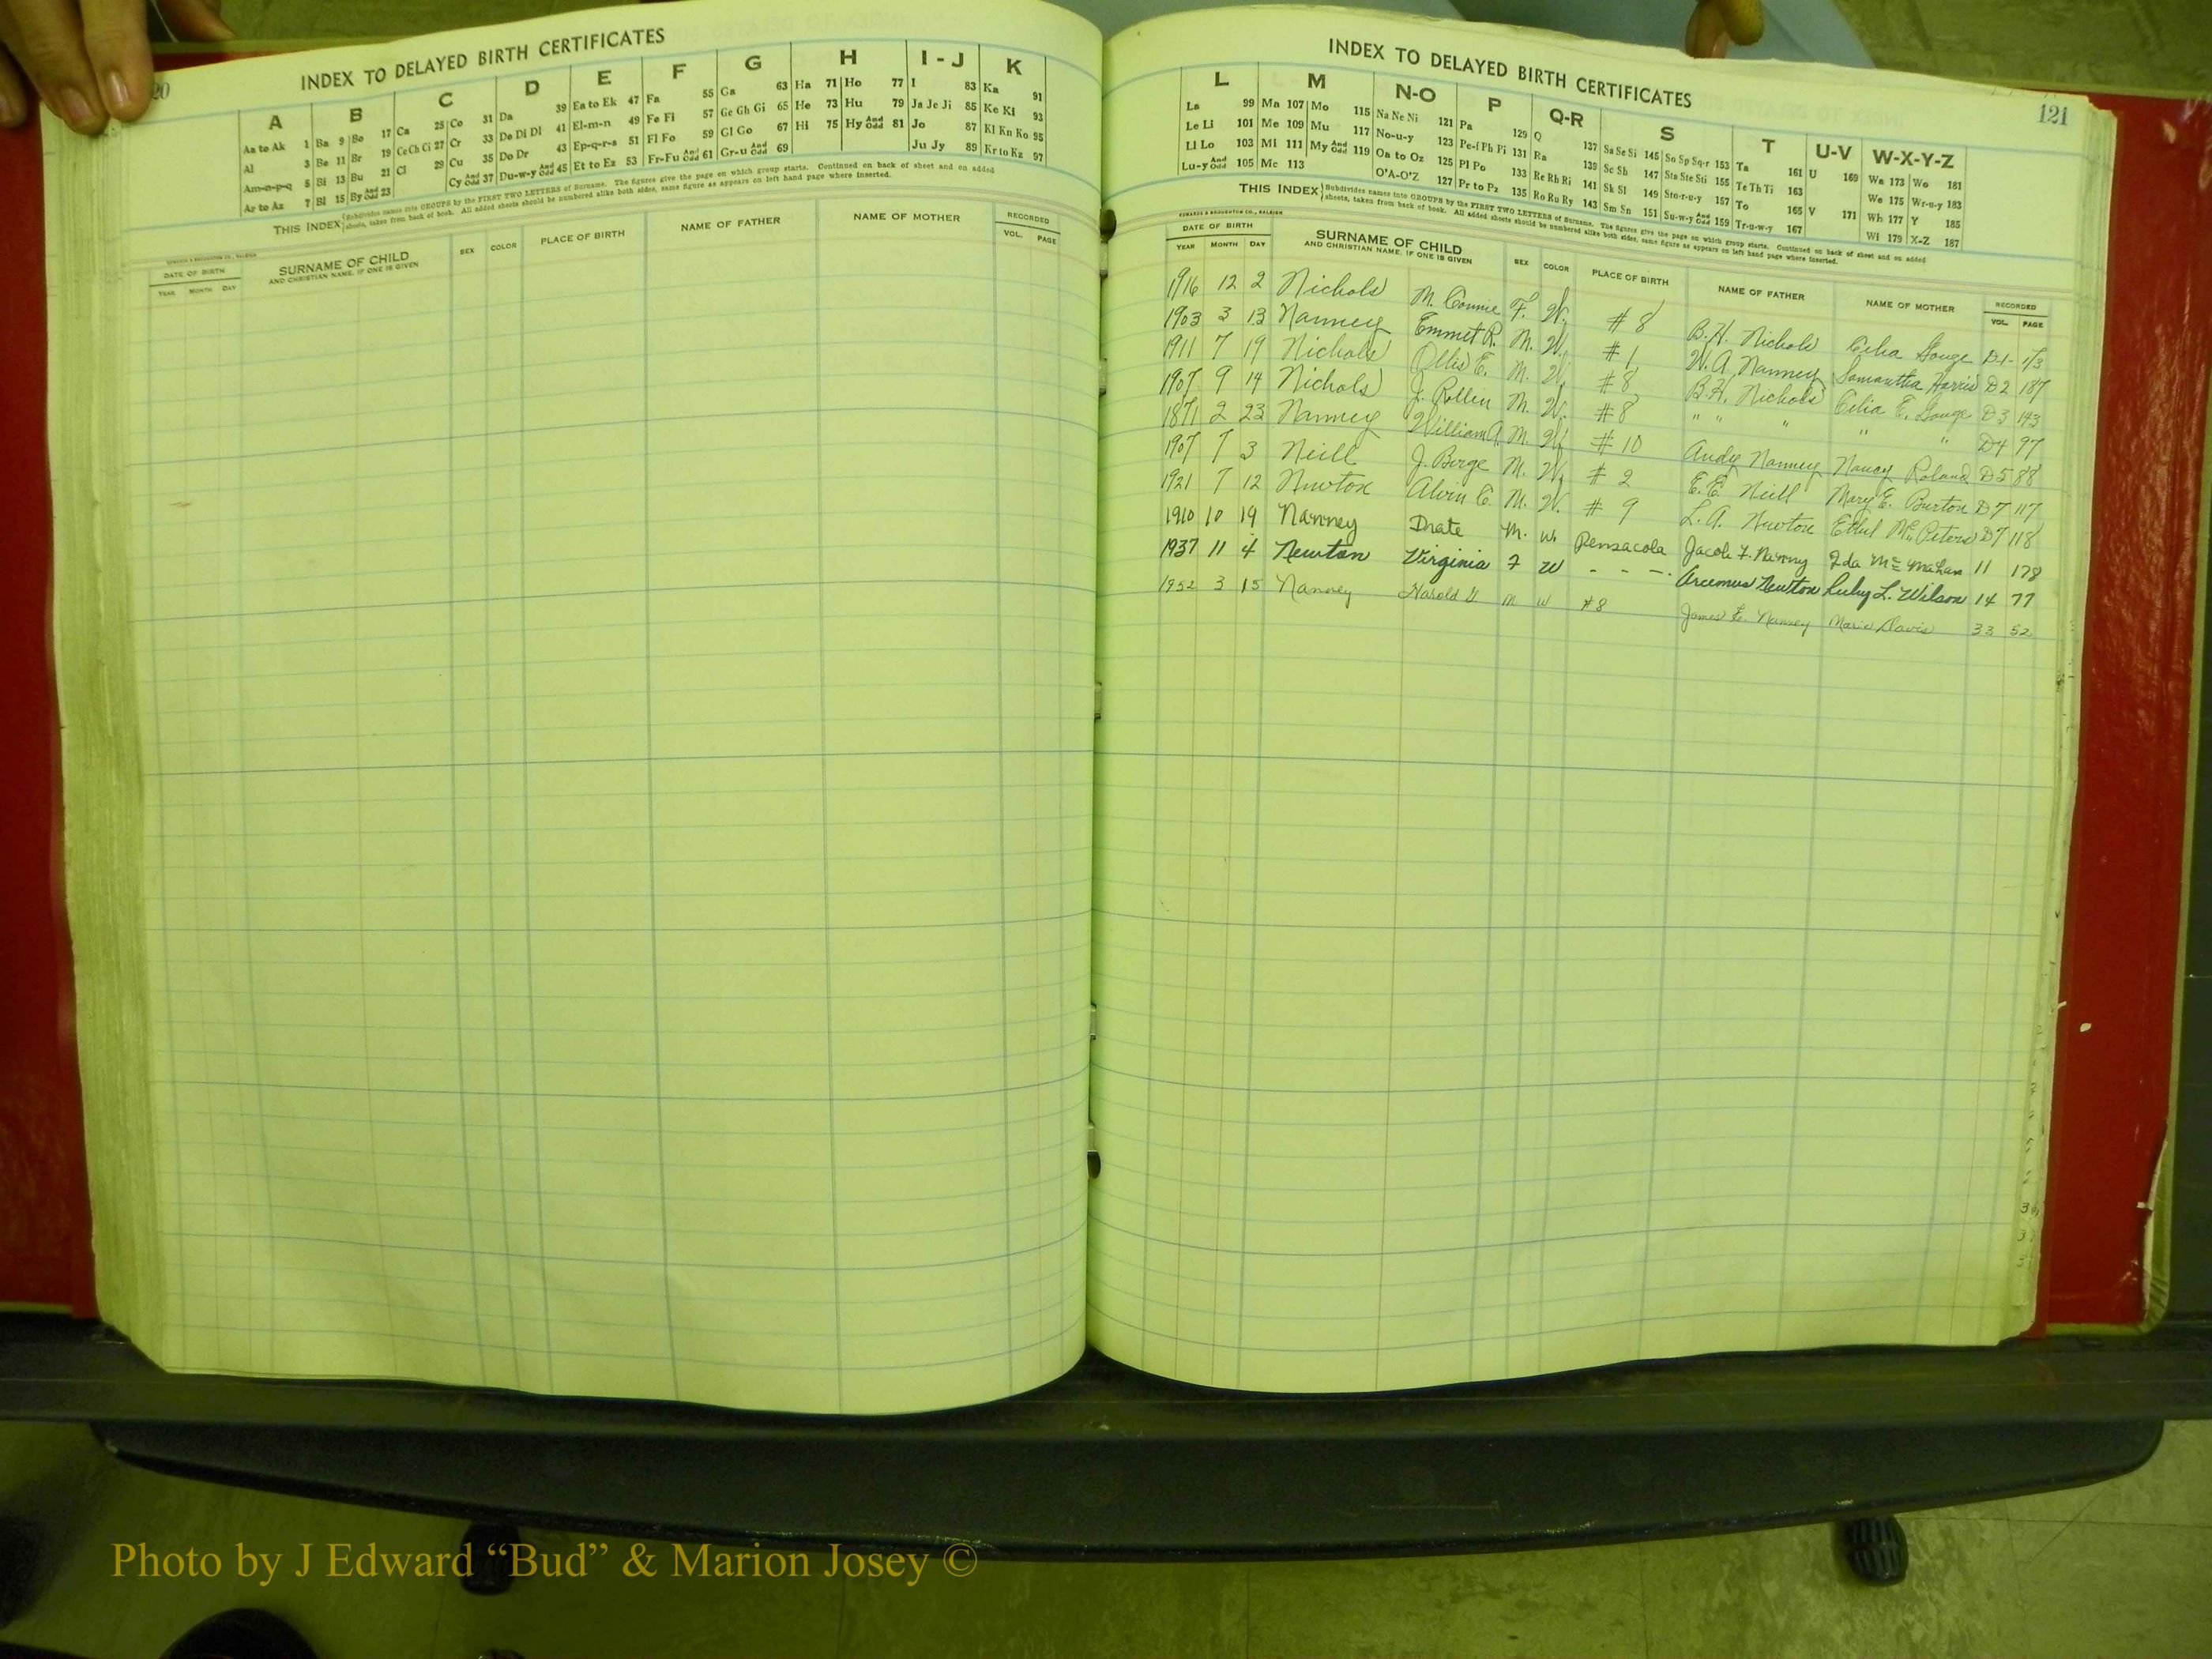 20
INDEX TO DELAYED BIRTH CERTIFICATES
A B C D E F G H I - J K
Aa to Ak 1 Ba 9 Bo 17 Ca 25 Co 31 Da 39 Ea to Ek 47 Fa 55 Ga 63 Ha 71 Ho 77 I 83 Ka 91
Al 3 Be 11 Br 19 Ce Ch Ci 27 Cr 33 De Di Dl 41 El-m-n 49 Fe Fi 57 Ge Gh Gi 65 He 73 Hu 79 Ja Je Ji 85 Ke Ki 93
Am-n-p-q 5 Bi 13 Bu 21 Cl 29 Cu 35 Do Dr 43 Ep-q-r-s 51 Fl Fo 59 Gl Go 67 Hi 75 Hy And Odd 81 Jo 87 Kl Kn Ko 95
Ar to Az 7 Bl 15 By And Odd 23 Cy And Odd 37 Du-w-y And Odd 45 Et to Ez 53 Fr-Fu And Odd 61 Gr-u And Odd 69 Ju Jy 89 Kr to Kz 97
THIS INDEX Subdivides names into GROUPS by the FIRST TWO LETTERS of Surname. The figures give the page on which group starts. Continued on back of sheet and on added
sheets, taken from back of book. All added sheets should be numbered alike both sides, same figure as appears on left hand page where inserted.
EDWARDS & BROUGHTON CO., RALEIGH
DATE OF BIRTH SURNAME OF CHILD SEX COLOR PLACE OF BIRTH NAME OF FATHER NAME OF MOTHER RECORDED
YEAR MONTH DAY AND CHRISTIAN NAME, IF ONE IS GIVEN VOL. PAGE
INDEX TO DELAYED BIRTH CERTIFICATES
121
L M N-O P Q-R S T U-V W-X-Y-Z
La 99 Ma 107 Mo 115 Na Ne Ni 121 Pa 129 Q 137 Sa Se Si 145 So Sp Sq-r 153 Ta 161 U 169 Wa 173 Wo 181
Le Li 101 Me 109 Mu 117 No-u-y 123 Pe-f Ph Pi 131 Ra 139 Sc Sh 147 Sta Ste Sti 155 Te Th Ti 163 We 175 Wr-u-y 183
Ll Lo 103 Mi 111 My And Odd 119 Oa to Oz 125 Pl Po 133 Re Rh Ri 141 Sk Sl 149 Sto-r-u-y 157 To 165 V 171 Wh 177 Y 185
Lu-y And Odd 105 Mc 113 O'A-O'Z 127 Pr to Pz 135 Ro Ru Ry 143 Sm Sn 151 Su-w-y And Odd 159 Tr-u-w-y 167 Wi 179 X-Z 187
THIS INDEX Subdivides names into GROUPS by the FIRST TWO LETTERS of Surname. The figures give the page on which group starts. Continued on back of sheet and on added
sheets, taken from back of book. All added sheets should be numbered alike both sides, same figure as appears on left hand page where inserted.
EDWARDS & BROUGHTON CO., RALEIGH
DATE OF BIRTH SURNAME OF CHILD SEX COLOR PLACE OF BIRTH NAME OF FATHER NAME OF MOTHER RECORDED
YEAR MONTH DAY AND CHRISTIAN NAME, IF ONE IS GIVEN VOL. PAGE
1916 12 2 Nichols M. Connie F. W. #8 B. H. Nichols Celia Gouge D1- 173
1903 3 13 Nanney Emmet R. M. W. #1 W. A. Nanney Samantha Harris D2 187
1911 7 19 Nichols Ollis E. M. W. #8 B. H. Nichols Celia E. Gouge D3 193
1907 9 14 Nichols J. Rollin M. W. #8 " " " " " D4 97
1871 2 23 Nanney William A. M. W. #10 Andy Nanney Nancy Roland D5 88
1907 7 3 Neill J. Berge M. W. #2 E. E. Neill Mary E. Burton D7 117
1921 7 12 Newton Alvin C. M. W. #9 L. A. Newton Ethel McPeters D7 118
1910 10 19 Nanney Drate M. W. Pensacola Jacob F. Nanny Ida McMahan 11 178
1937 11 4 Newton Virginia F W - - - Arcemus Newton Ruby L. Wilson 14 77
1952 3 15 Nanney Harold M W #8 James E. Nanney Marie Davis 33 52
Photo by J Edward “Bud” & Marion Josey ©